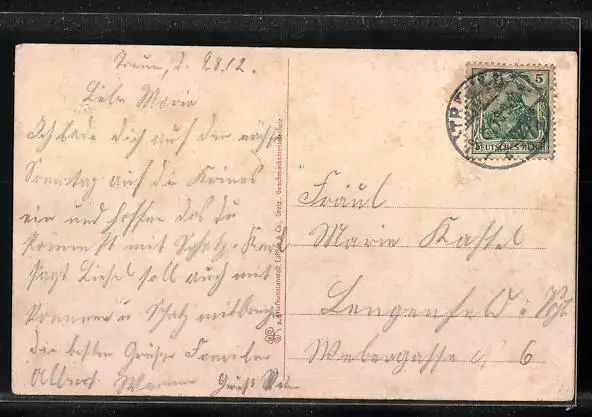 Treuen, d. 9.8.12.
Liebe Marie
Ich lade dich auf den
Sonntag auf die Kirmes
ein und hoffen das du
kommst mit Schatz. Karl
sagt Liesel soll auch mit
kommen u Schatz mitbringen
die besten Grüße Familie
Albert
TREUEN
5
DEUTSCHES REICH
Fräul
Marie Kassel
Lengenfeld i. Vgl
Webergasse 6